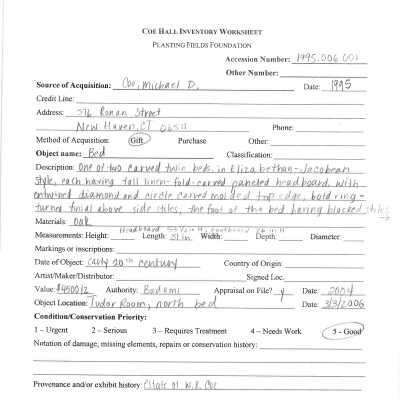 COE HALL INVENTORY WORKSHEET
PLANTING FIELDS FOUNDATION
Accession Number: 1995.006.001
Other Number:
Source of Acquisition: Coe, Michael D. Date: 1995
Credit Line:
Address: 376 Ronan Street
New Haven, CT 06511 Phone:
Method of Acquisition: Gift Purchase Other:
Object name: Bed Classification:
Description: One of two carved twin beds, in Elizabethan-Jacobean
style, each having tall linen-fold-carved paneled headboard. With
entwined diamond and circle carved molded top edge, bold ring-
turned finial above side stiles, the foot of the bed having blocked stiles
Materials: Oak
Headboard
Measurements: Height: Length: 81 in. Width: Depth: Diameter:
Markings or inscriptions:
Date of Object: early 20th century Country of Origin:
Artist/Maker/Distributor: Signed Loc.
Value: Authority: Badami Appraisal on File? Y Date: 2004
Object Location: Tudor Room, north bed Date: 3/3/2006
Condition/Conservation Priority:
1 – Urgent 2 – Serious 3 – Requires Treatment 4 – Needs Work 5 – Good
Notation of damage, missing elements, repairs or conservation history:
Provenance and/or exhibit history: Estate of W.R. Coe